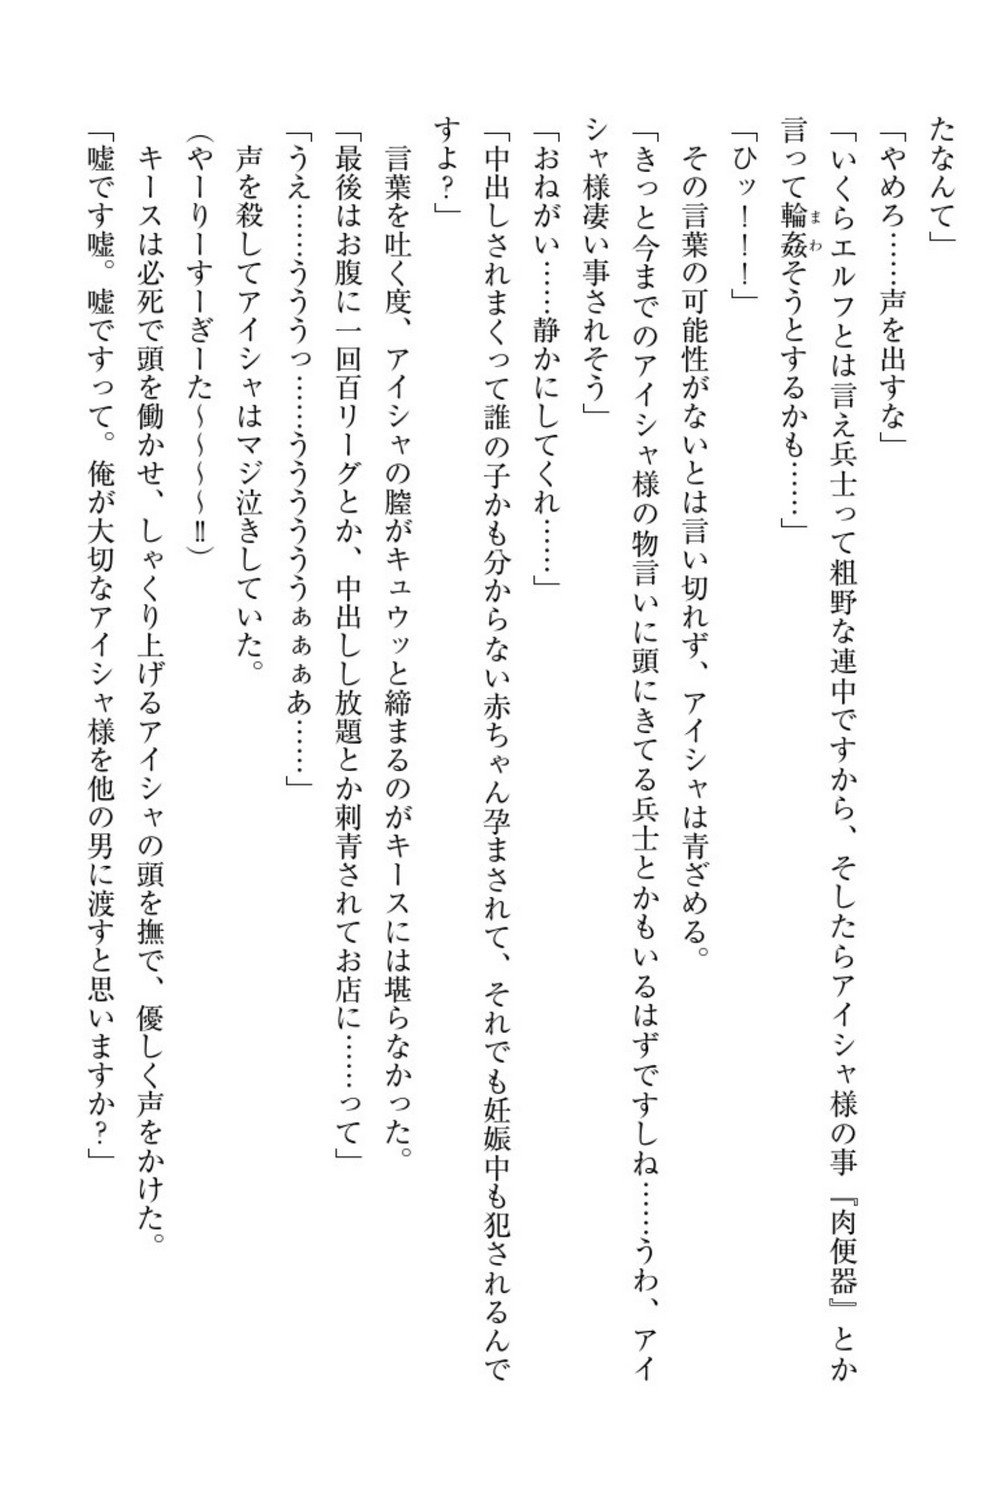 たなんて」
「やめろ……声を出すな」
「いくらエルフとは言え兵士って粗野な連中ですから、そしたらアイシャ様の事『肉便器』とか
言って輪姦そうとするかも……」
まわ
「ひッ！！！」
その言葉の可能性がないとは言い切れず、アイシャは青ざめる。
「きっと今までのアイシャ様の物言いに頭にきてる兵士とかもいるはずですしね……うわ、アイ
シャ様凄い事されそう」
「おねがい……静かにしてくれ……」
「中出しされまくって誰の子かも分からない赤ちゃん孕まされて、それでも妊娠中も犯されるんで
すよ？」
言葉を吐く度、アイシャの膣がキュウッと締まるのがキースには堪らなかった。
「最後はお腹に一回百リーグとか、中出しし放題とか刺青されてお店に……って」
「うえ……うううっ……ううううううぁぁぁあ……」
声を殺してアイシャはマジ泣きしていた。
（やーりーすーぎーた～～～～‼）
キースは必死で頭を働かせ、しゃくり上げるアイシャの頭を撫で、優しく声をかけた。
「嘘です嘘。嘘ですって。俺が大切なアイシャ様を他の男に渡すと思いますか？」